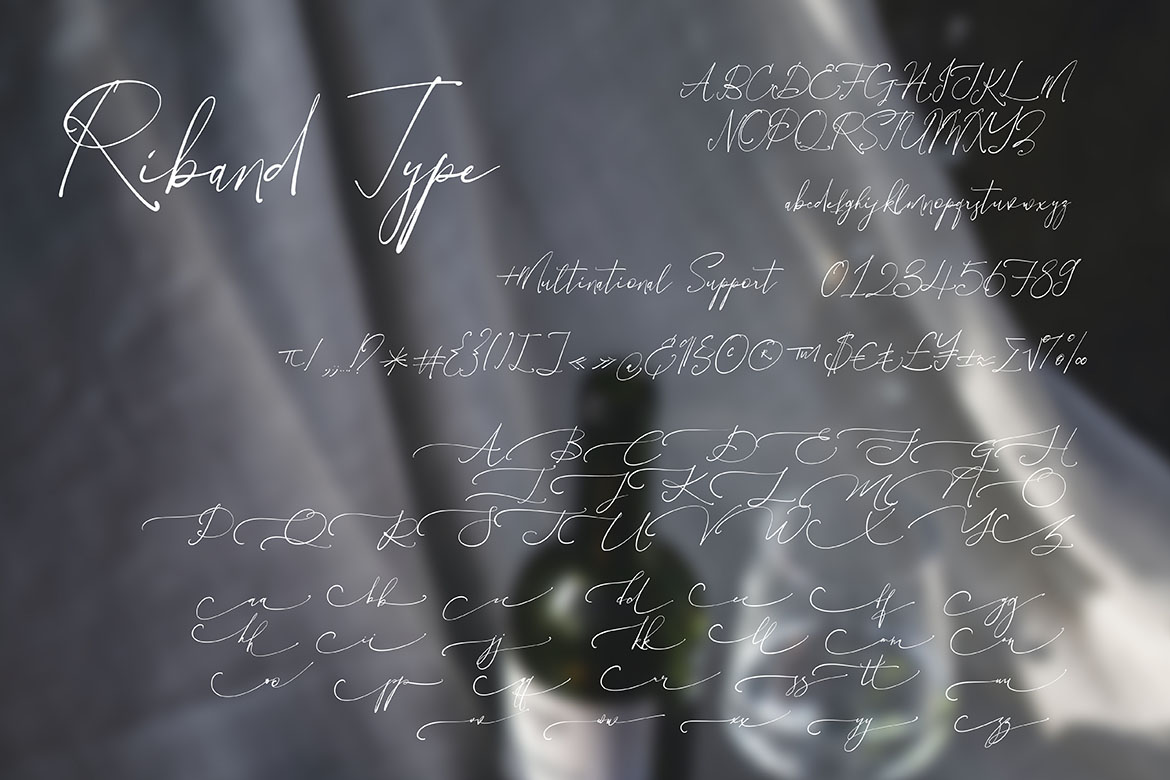 Riband Type
ABCDEFGHIJKLM
NOPQRSTUVWXYZ
abcdefghijklmnopqrstuvwxyz
+Multinational Support
0123456789
A B C D E F G H
I J K L M N O
P Q R S T U V W X Y Z
aa bb cc dd ee ff gg
hh ii jj kk ll mm nn
oo pp qq rr ss tt uu
vv ww xx yy zz